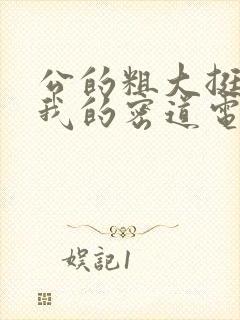 公的粗大挺
我的密道電
娱記1